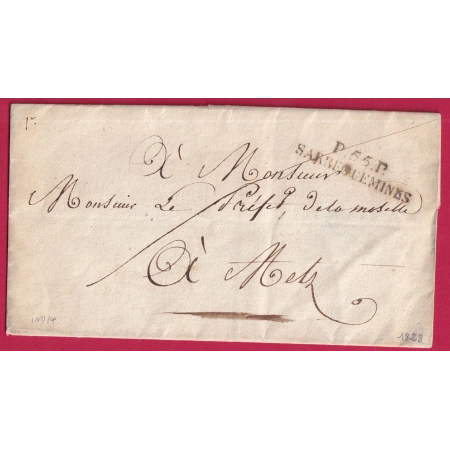 P.55.P.
SARREGUEMINES
À Monsieur
Monsieur Le Préfet, de la moselle
À Metz
1828